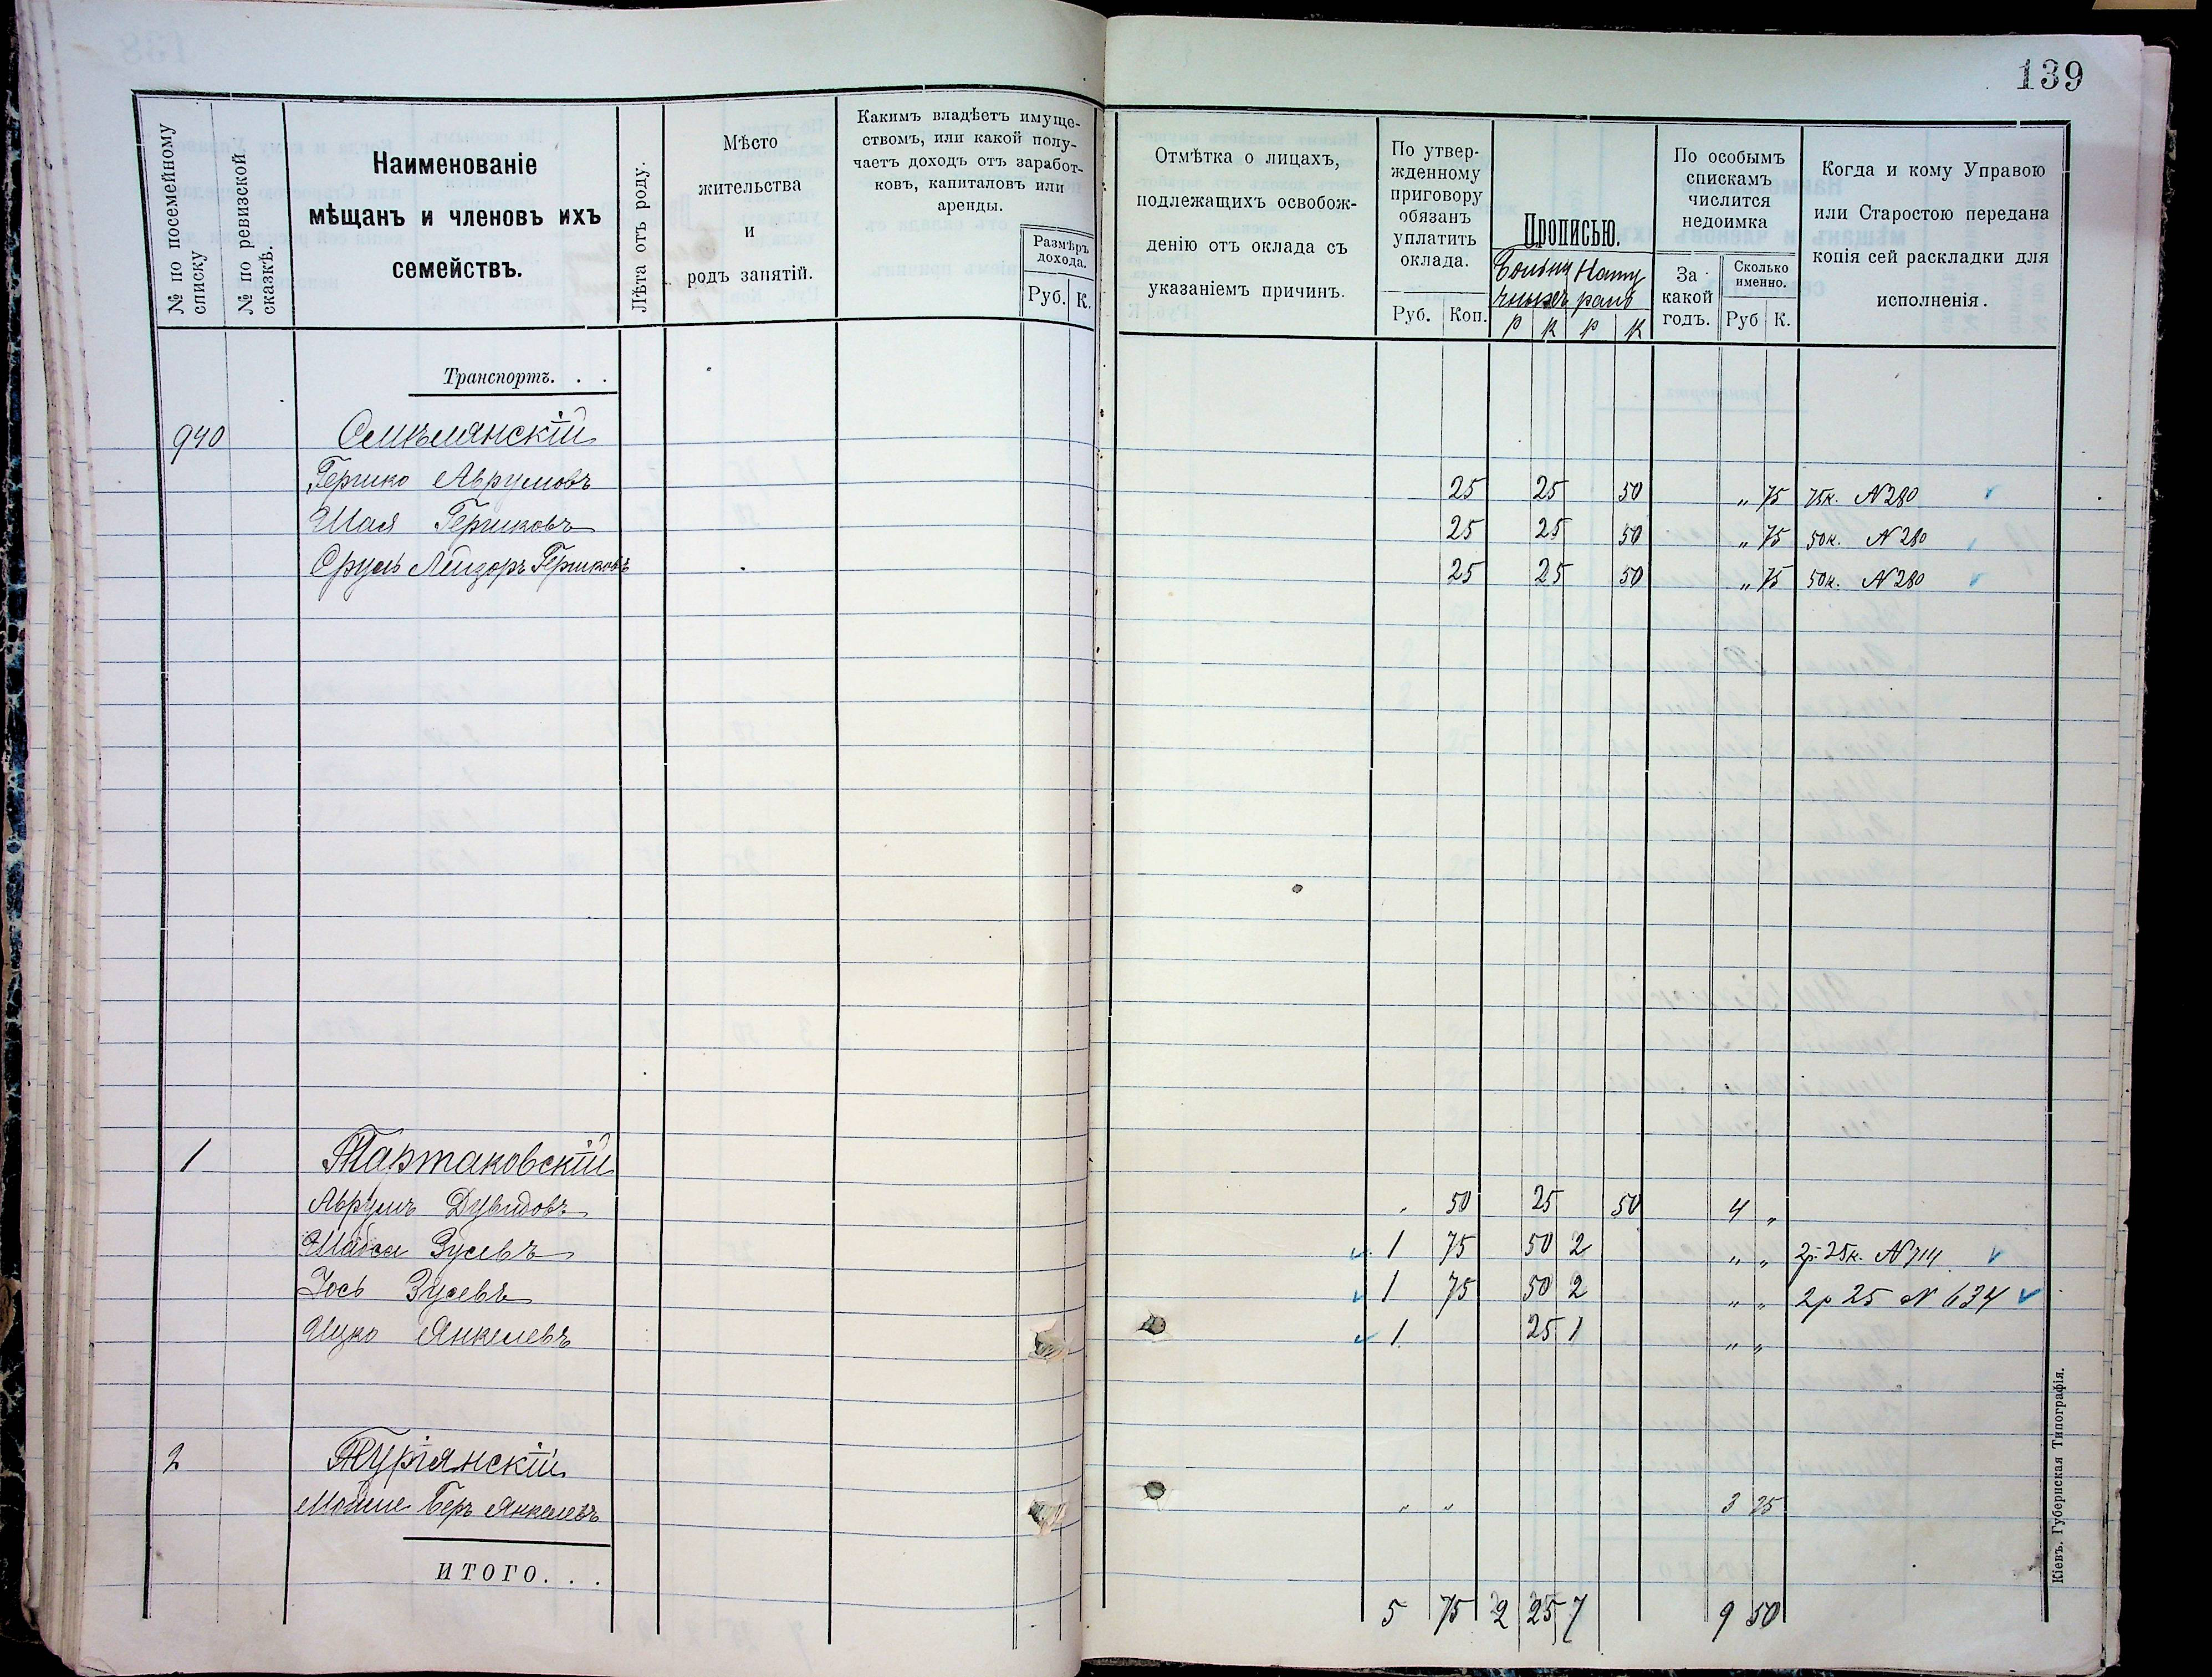 139
№ по посемейному списку
№ по ревизской сказкѣ.
Наименованіе
мѣщанъ и членовъ ихъ
семействъ.
Лѣта отъ роду.
Мѣсто
жительства
и
родъ занятій.
Какимъ владѣетъ имуще-
ствомъ, или какой полу-
чаетъ доходъ отъ заработ-
ковъ, капиталовъ или
аренды.
Размѣръ
дохода.
Руб. К.
Отмѣтка о лицахъ,
подлежащихъ освобож-
денію отъ оклада съ
указаніемъ причинъ.
По утвер-
жденному
приговору
обязанъ
уплатить
оклада.
Руб. Коп.
Прописью.
Больни Нату
чныхъ рало
р к р к
По особымъ
спискамъ
числится
недоимка
За
какой
годъ.
Сколько
именно.
Руб К.
Когда и кому Управою
или Старостою передана
копія сей раскладки для
исполненія.
Транспортъ. . .
940 Смѣлянскій
Гершко Аврумовъ 25 25 50 „ 75 75к. N 280
Шая Гершковъ 25 25 50 „ 75 50к. N 280
Сруль Лейзоръ Гершковъ 25 25 50 „ 75 50к. N 280
1 Тартаковскій
Аврумъ Дувидовъ 50 25 50 4 „
Шабса Зусевъ 1 75 50 2 „ „ 2р. 25к. N 714
Іось Зусевъ 1 75 50 2 „ „ 2р 25 N 634
Ицко Янкелевъ 1 25 1 „ „
2 Туріянскій
Мойше Беръ Янкелевъ „ „ 3 25
ИТОГО. . .
5 75 2 25 7 9 50
Кіевъ. Губернская Типографія.